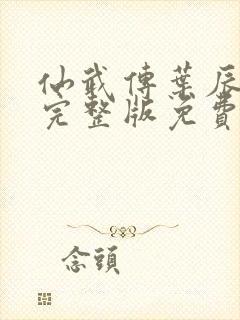 仙武傳葉辰
完整版免費
念頭